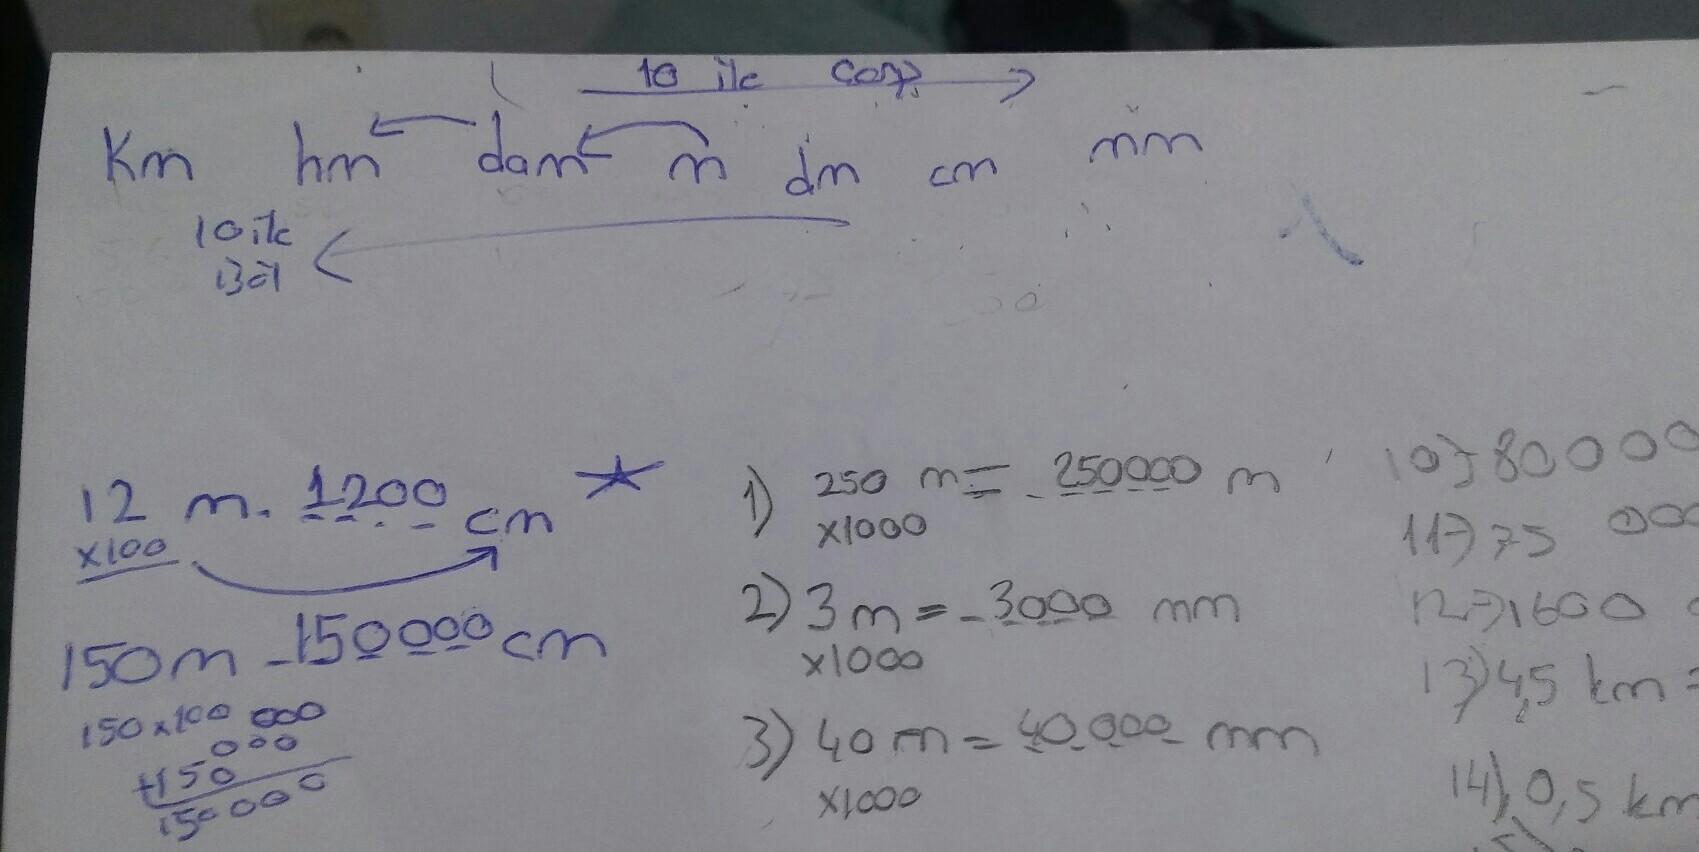 10 ile çarp.
Km hm dam m dm cm mm
10 ile
Böl
12 m. 1200 cm
x100
150m - 150000 cm
150x100 000
000
+150
150000
1) 250 m = 250000 m
x1000
2) 3m = 3000 mm
x1000
3) 40 m = 40.000 mm
x1000
10) 80000
11) 75 000
12) 1600
13) 4,5 km =
14) 0,5 km